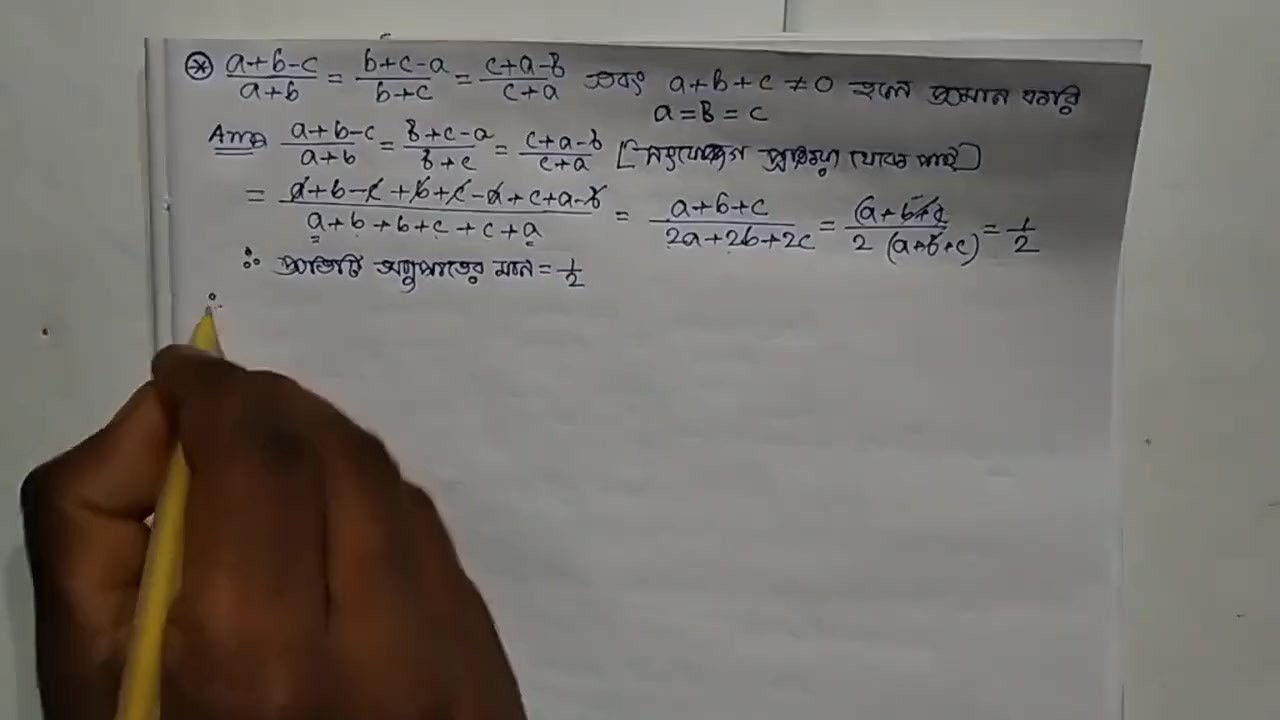 ⊛ (a+b-c)/(a+b) = (b+c-a)/(b+c) = (c+a-b)/(c+a) এবং a+b+c ≠ 0 হলে প্রমান করি
a = B = c
Ans (a+b-c)/(a+b) = (b+c-a)/(b+c) = (c+a-b)/(c+a) [সংযোজন প্রক্রিয়া থেকে পাই]
= (a+b-c+b+c-a+c+a-b)/(a+b+b+c+c+a) = (a+b+c)/(2a+2b+2c) = (a+b+c)/(2(a+b+c)) = 1/2
∴ প্রতিটি অনুপাতের মান = 1/2